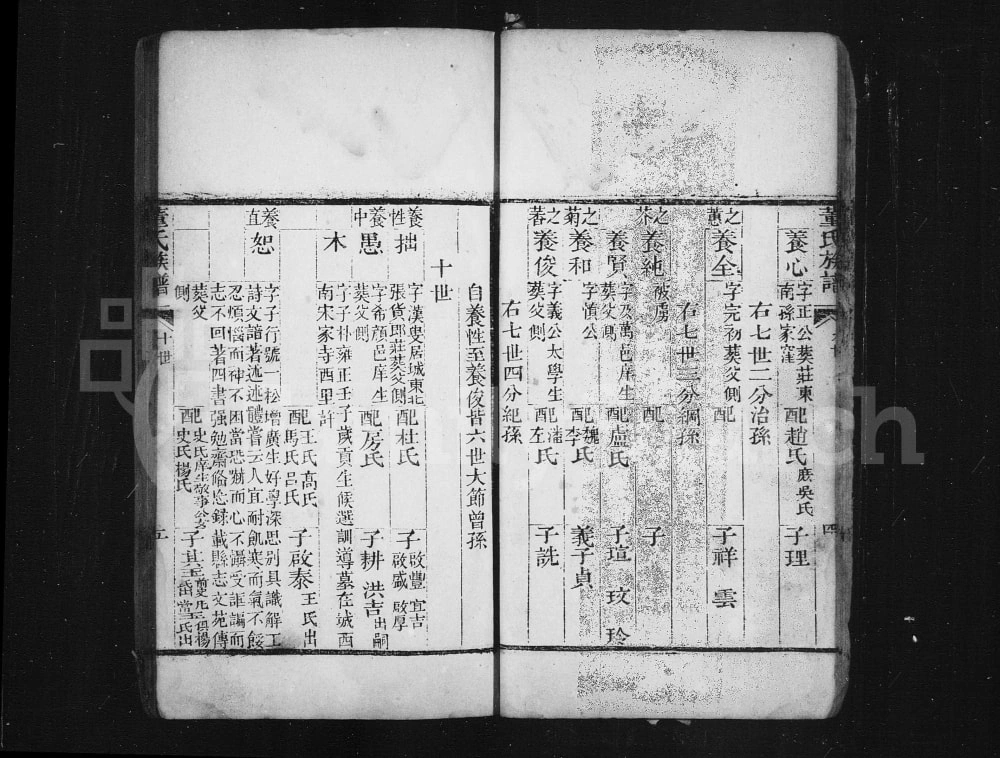 董氏族譜
四
養心
字正公葬莊東
南孫家窪
配趙氏庶吳氏
子理
右七世二分治孫
之蕙
養全
字完初葬父側
配
子祥 雲
右七世三分綱孫
之茶
養純
被虜
配
子
養賢
字及萬邑庠生
葬父側
配盧氏
子瑄 玟 玲
之菊
養和
字慎公
配魏氏
李氏
義子貞
之蕃
養俊
字義公太學生
葬父側
配潘氏
左氏
子詵
右七世四分紀孫
自養性至養俊皆六世大節曾孫
十世
養性
拙
字漢叟居城東北
張貨郎莊葬父側
配杜氏
子啟豐 宜吉
啟盛 啟厚
養中
愚
字希顏邑庠生
葬父側
配房氏
子耕 洪吉出嗣
木
字子朴雍正壬子歲貢生候選訓導墓在城西
南宋家寺西里許
配王氏高氏
馬氏呂氏
子啟泰王氏出
養直
恕
字子行號一松增廣生好學深思別具識解工
詩文諳著述述體嘗云人宜耐飢寒而氣不餒
忍煩惱而神不困當恐嚇而心不懾受誣謗而
志不回著四書強勉齋語錄載縣志文苑傳
葬父側
配史氏庠生敬事公女
史氏楊氏
董氏族譜
十世
五